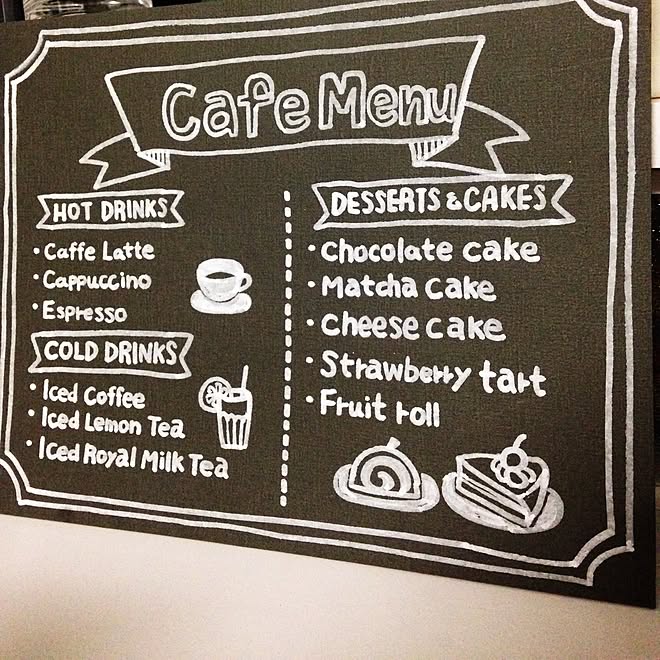 Cafe Menu
HOT DRINKS
• Caffe Latte
• Cappuccino
• Espresso
COLD DRINKS
• Iced Coffee
• Iced Lemon Tea
• Iced Royal Milk Tea
DESSERTS & CAKES
• Chocolate cake
• Matcha cake
• Cheese cake
• Strawberry tart
• Fruit roll